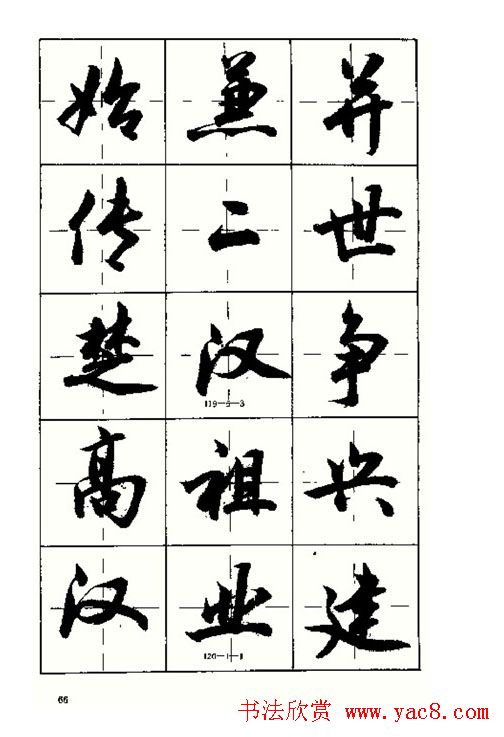 始兼并
传二世
楚汉争
119—5—3
高祖兴
汉业建
120—1—1
66
书法欣赏 www.yac8.com